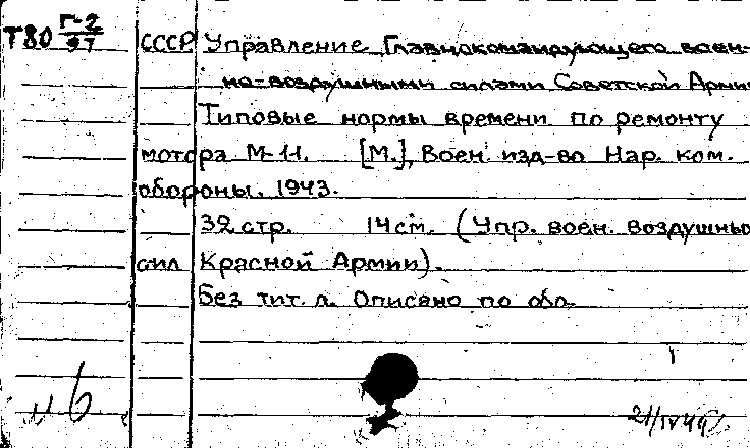 Т80 Г-2/97
СССР Управление Главнокомандующего воен-
но-воздушными силами Советской Армии
Типовые нормы времени по ремонту
мотора М-11. [М.], Воен. изд-во Нар. ком.
обороны. 1943.
32 стр. 14 см. (Упр. воен. воздушных
сил Красной Армии).
Без тит. л. Описано по обл.
21/IV 49